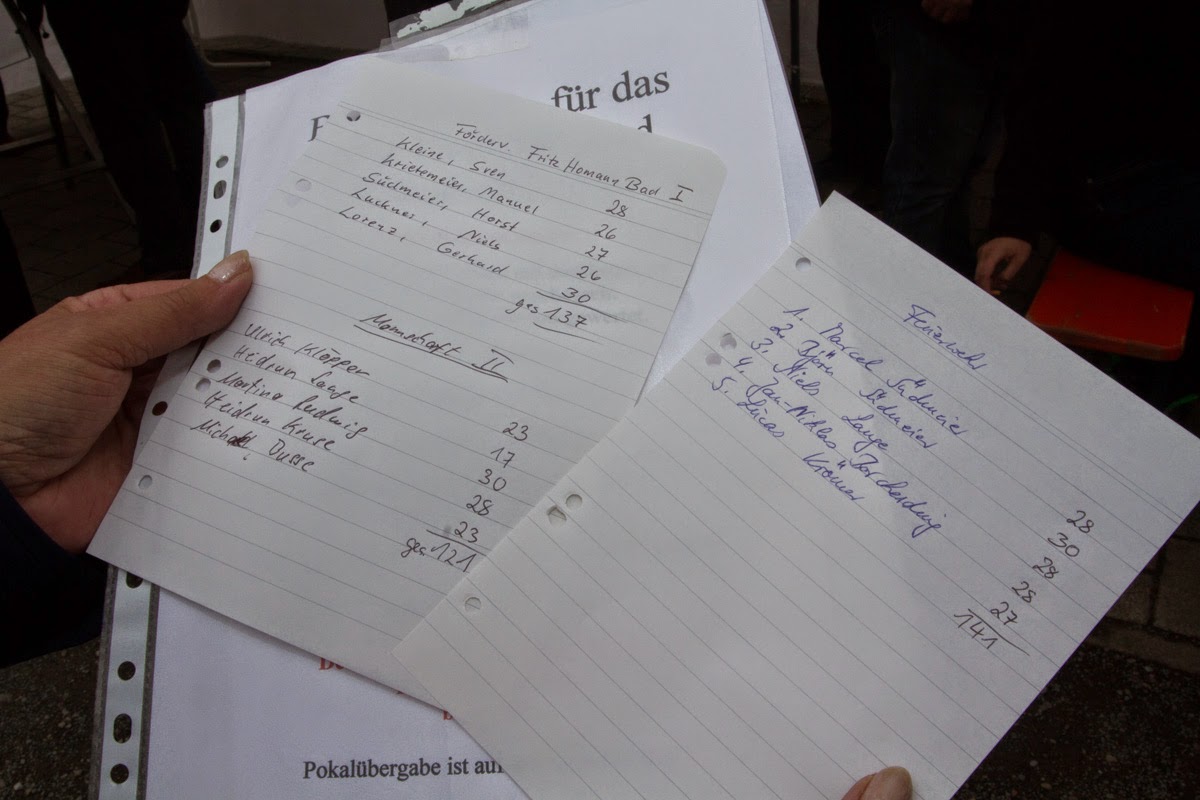 für das
F
Förderv. Fritz Homann Bad I
Kleine, Sven 28
Krietemeier, Manuel 26
Südmeier, Horst 27
Luckner, Niels 26
Lorenz, Gerhard 30
ges 137
Mannschaft II
Ulrich Klöpper 23
Heidrun Lange 17
Martina Ludwig 30
Heidrun Kruse 28
Michael Dusse 23
ges 121
Feuerwehr
1. Marcel Südmeier 28
2. Björn Südmeier 30
3. Niels Lange 28
4. Jan-Niklas 28
5. Lucas Krömer 27
141
Pokalübergabe ist auf